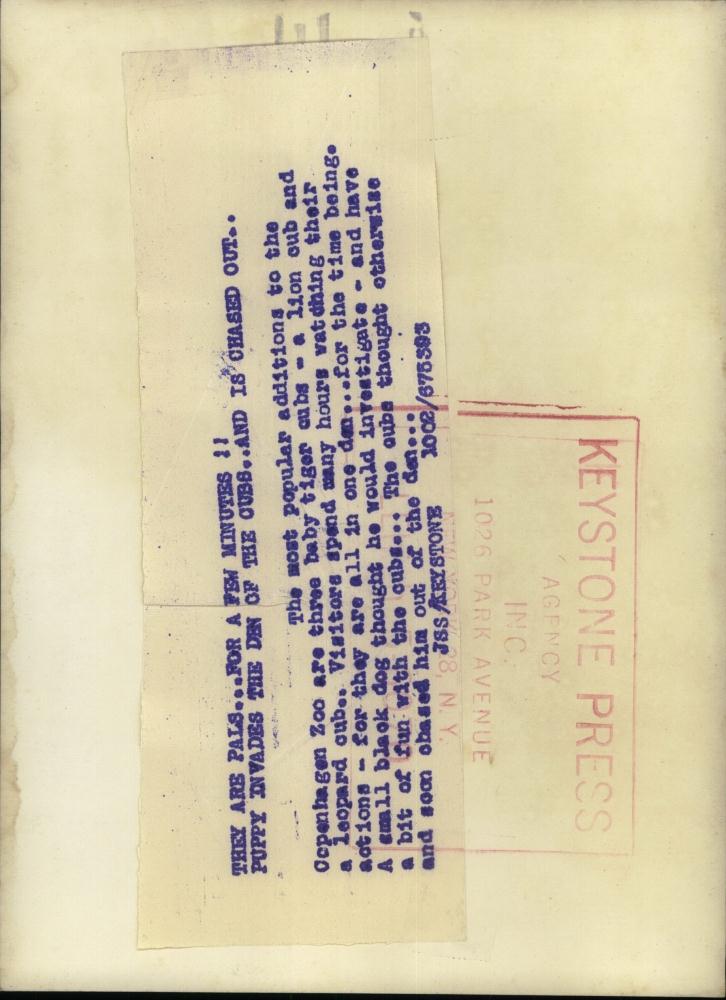 THEY ARE PALS...FOR A FEW MINUTES !!
PUPPY INVADES THE DEN OF THE CUBS..AND IS CHASED OUT..
The most popular additions to the
Copenhagen Zoo are three baby tiger cubs - a lion cub and
a leopard cub.. Visitors spend many hours watching their
actions - for they are all in one den...for the time being.
A small black dog thought he would investigate - and have
a bit of fun with the cubs... The cubs thought otherwise
and soon chased him out of the den...
JSS/KEYSTONE 1002/675393
KEYSTONE PRESS
AGENCY
INC.
1026 PARK AVENUE
NEW YORK 28, N. Y.